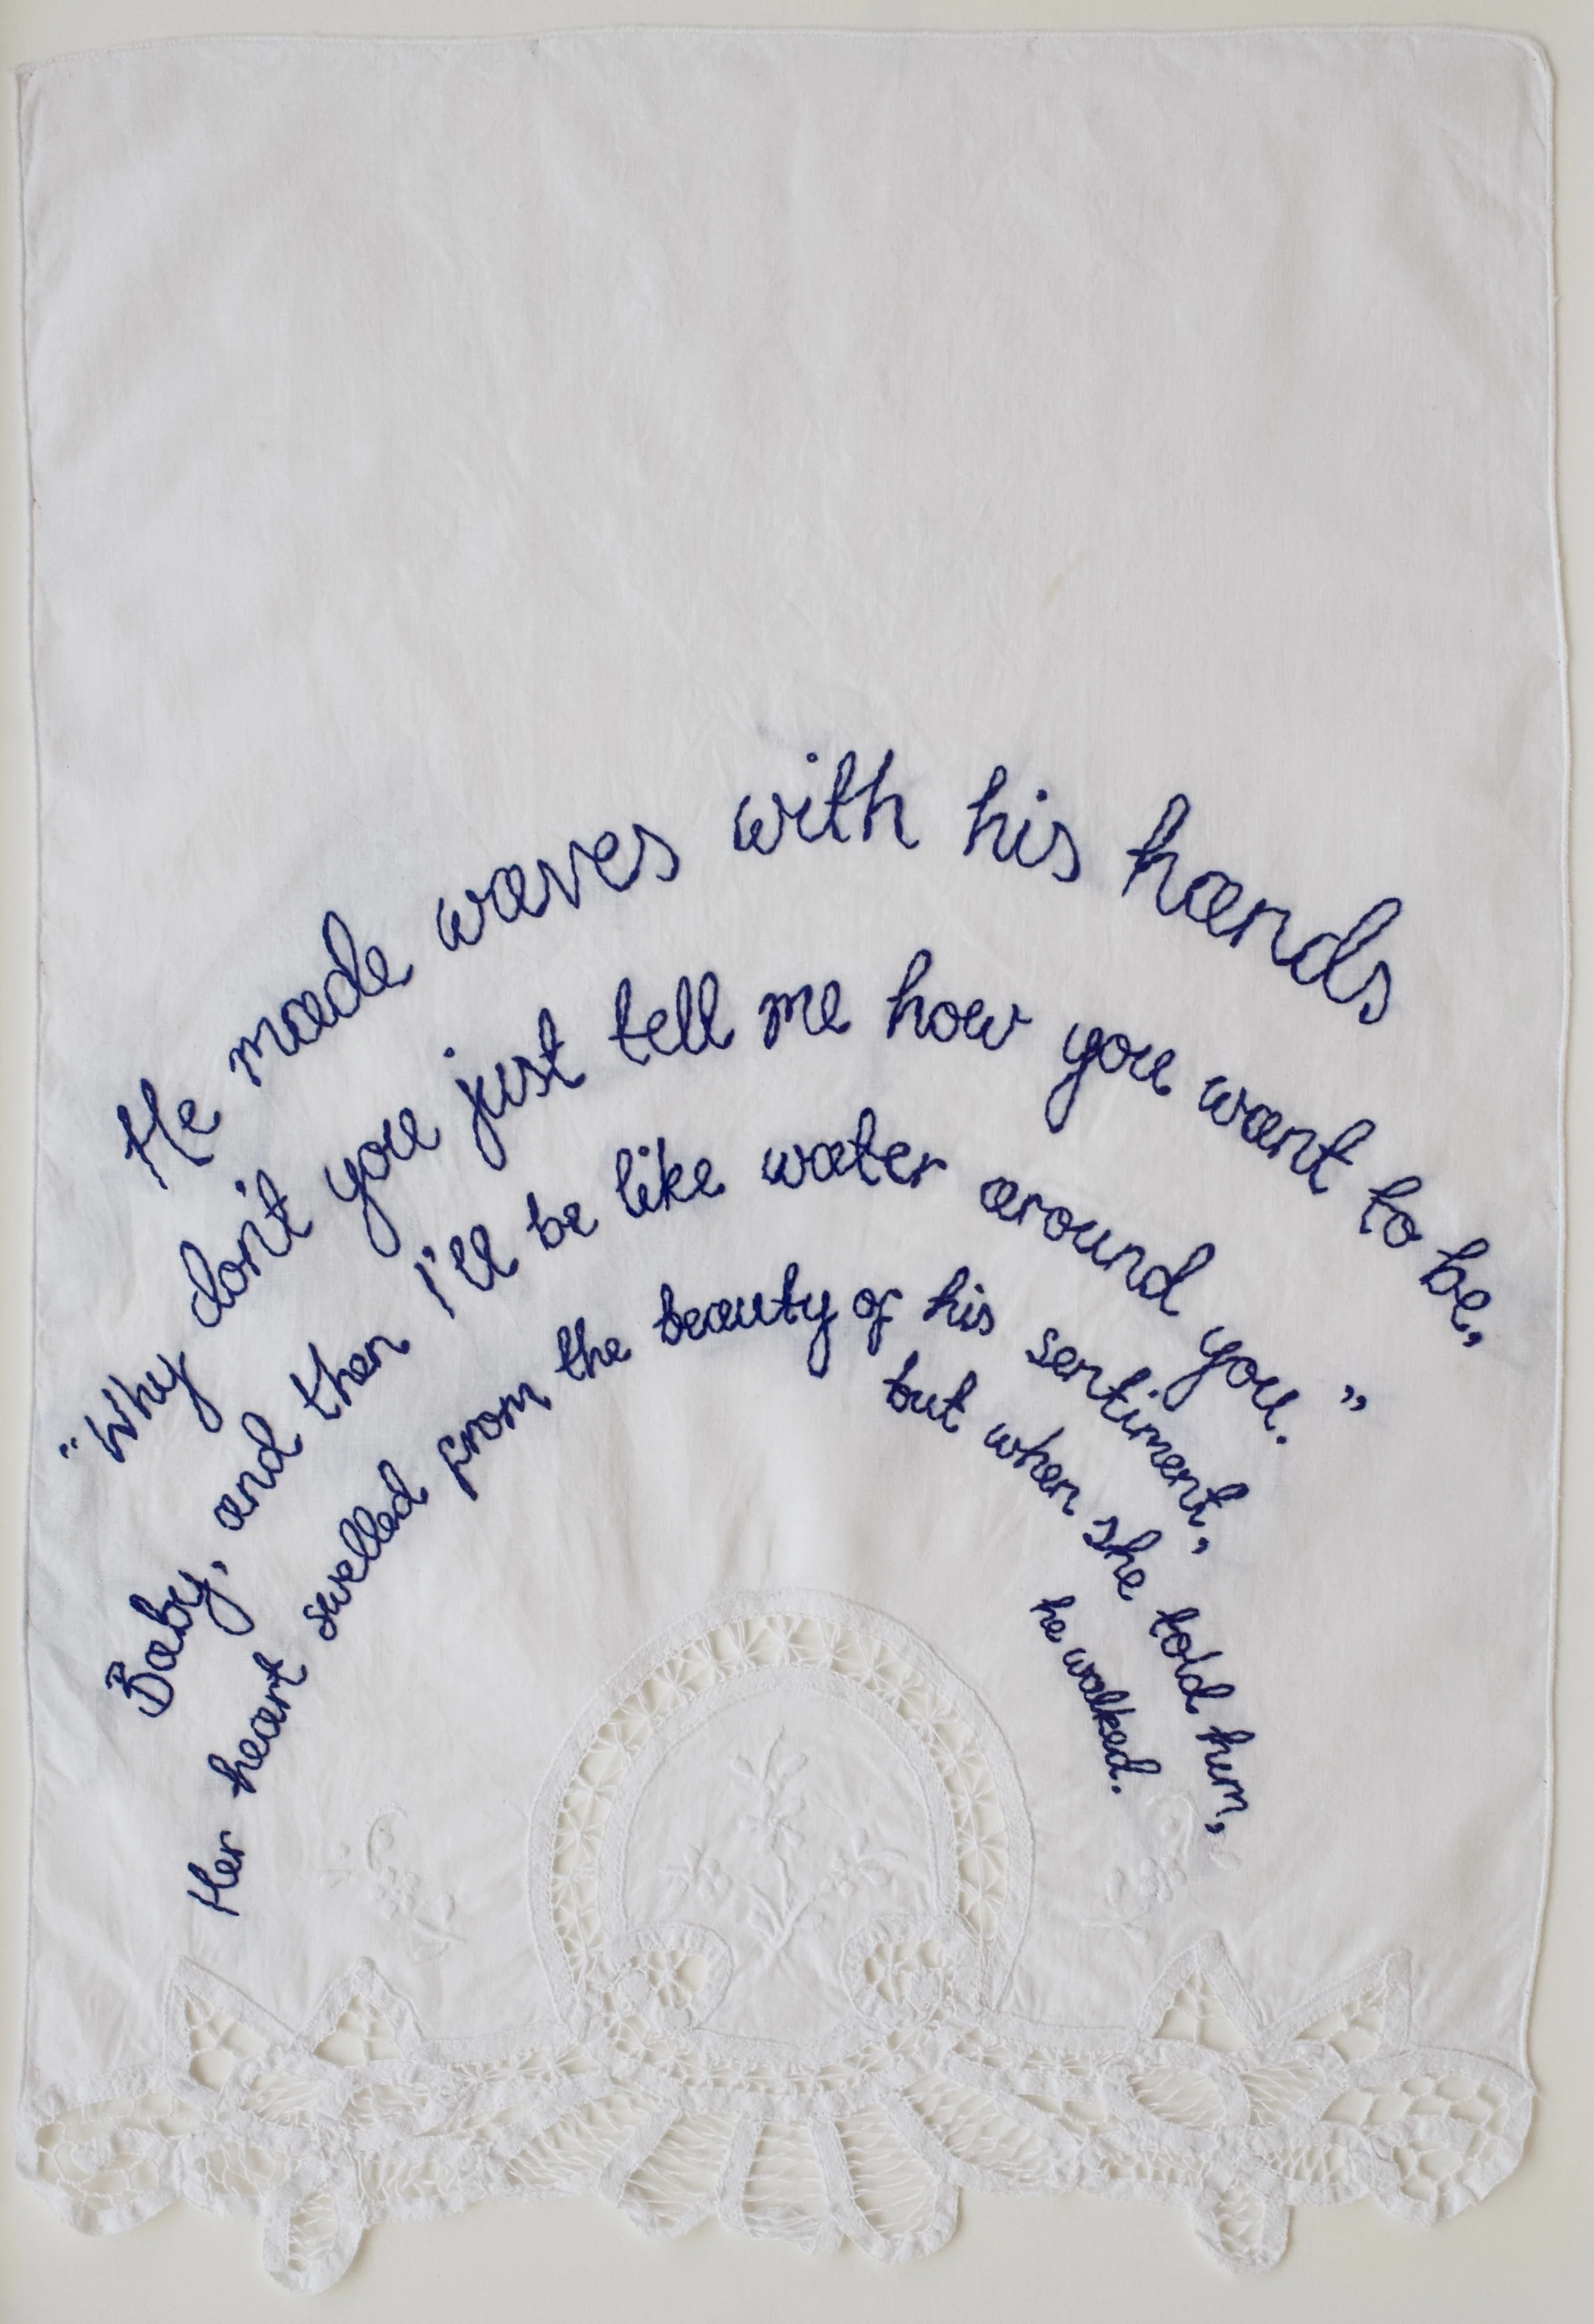 He made waves with his hands
"Why don't you just tell me how you want to be,
Baby, and then I'll be like water around you."
Her heart swelled from the beauty of his sentiment,
but when she told him,
he walked.